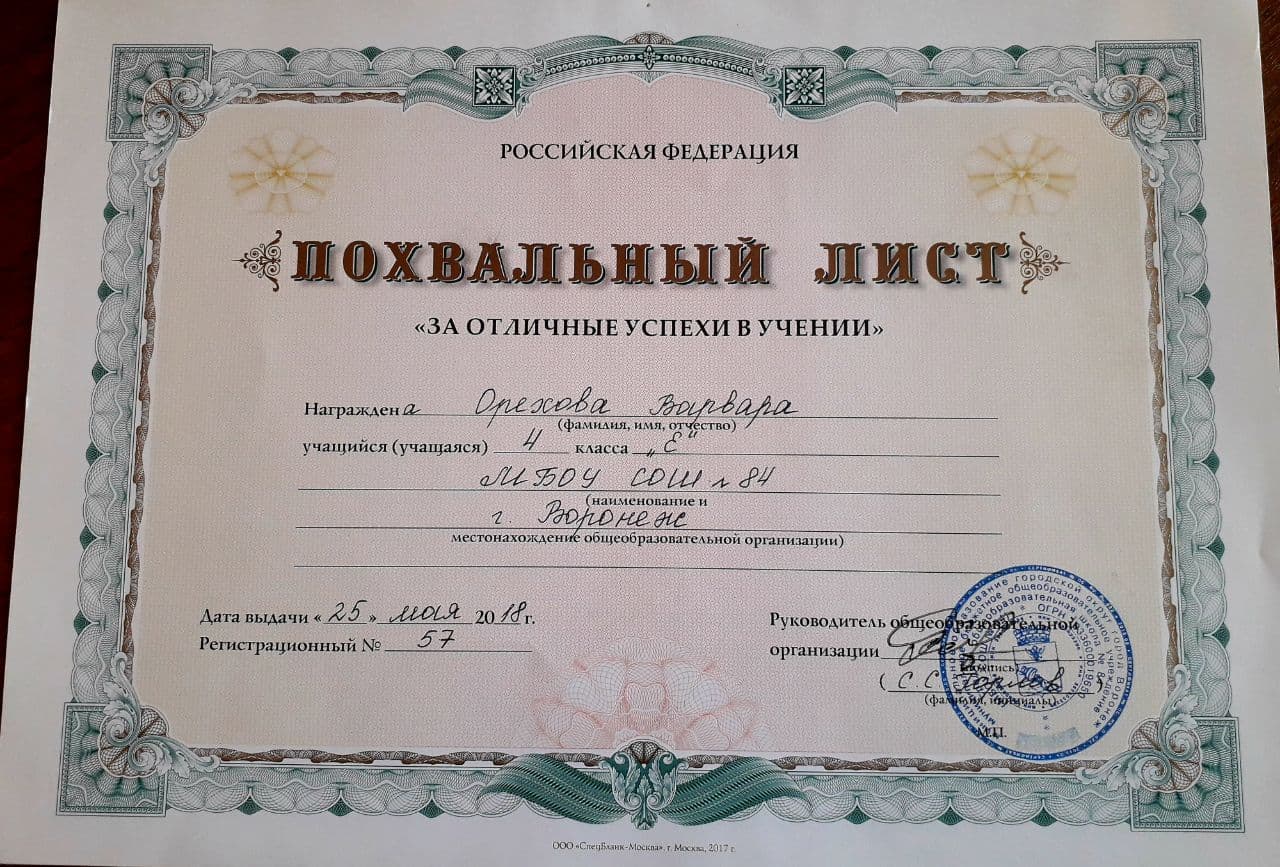 РОССИЙСКАЯ ФЕДЕРАЦИЯ
ПОХВАЛЬНЫЙ ЛИСТ
«ЗА ОТЛИЧНЫЕ УСПЕХИ В УЧЕНИИ»
Награждена Орехова Варвара
(фамилия, имя, отчество)
учащийся (учащаяся) 4 класса „Е"
МБОУ СОШ № 84
(наименование и
г. Воронеж
местонахождение общеобразовательной организации)
Дата выдачи «25» мая 2018 г.
Регистрационный № 57
Руководитель общеобразовательной
организации
(подпись)
(С.С. )
(фамилия, инициалы)
М.П.
ООО «СпецБланк-Москва», г. Москва, 2017 г.